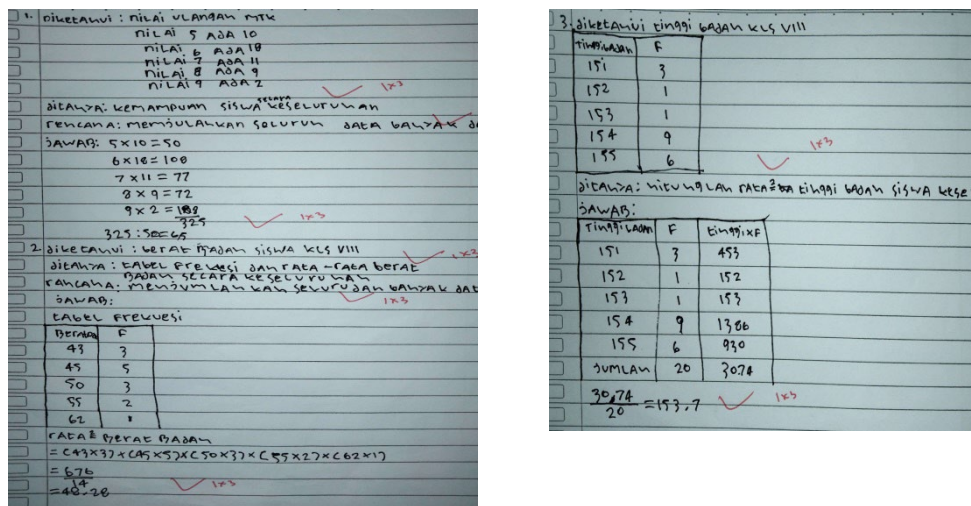 1. Diketahui : nilai ulangan MTK
nilai 5 ada 10
nilai 6 ada 18
nilai 7 ada 11
nilai 8 ada 9
nilai 9 ada 2
1x3
ditanya: kemampuan siswa secara keseluruhan
rencana: menjulahkan seluruh data banyak da
Jawab: 5 x 10 = 50
6 x 18 = 108
7 x 11 = 77
8 x 9 = 72
9 x 2 =
325
1x3
325 : 50 = 65
2 diketahui : berat badan siswa kls VIII
1x3
ditanya : tabel frekuesi dan rata-rata berat
badan secara keseluruhan
rancana: menjumlahkan seluru dan banyak dat
1x3
Jawab:
tabel frekuesi
F
43 3
45 5
50 3
55 2
62
rata² berat badan
= (43x3)x(45x5)x(50x3)x(55x2)x(62x1)
= 676
14
= 48,28
1x3
3. diketahui tinggi badan kls VIII
Tinggi badan F
151 3
152 1
153 1
154 9
155 6
1x3
ditanya: hitunglah rata² tinggi badan siswa kese
Jawab:
Tinggi badan F tinggi x F
151 3 453
152 1 152
153 1 153
154 9 1386
155 6 930
Jumlah 20 3074
30,74
20
= 153,7
1x3